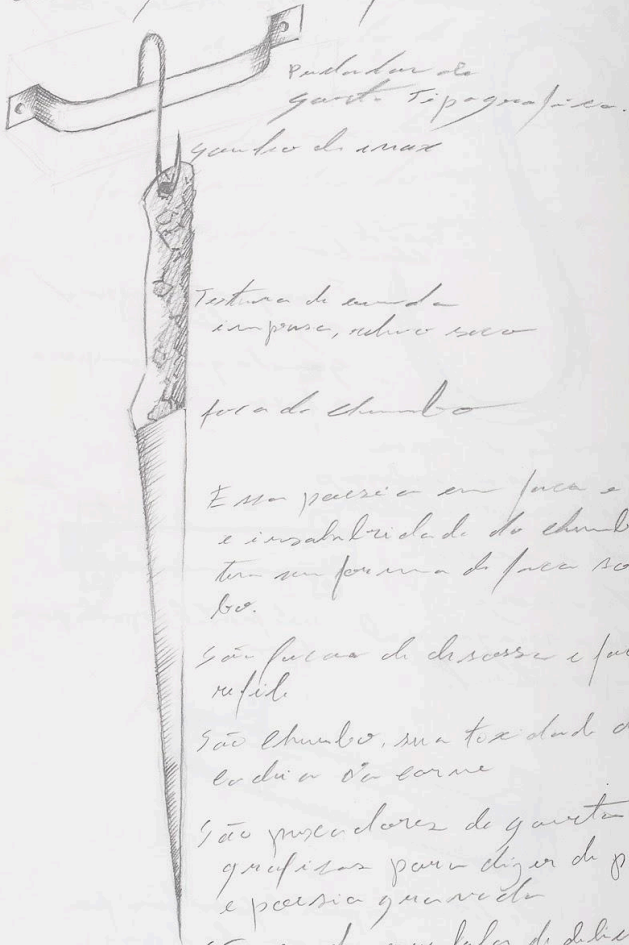 gaveta Tipografica.
gancho de inox
Textura de
impressa, relevo seco
faca de chumbo
Essa poesia em faca e
e insalubridade do chumb
tem sua forma de faca so
bo.
São facas de desossa e fac
refile
São chumbo, sua toxidade
da carne
São puxadores de gaveta
graficas para dizer de p
e poesia gravada